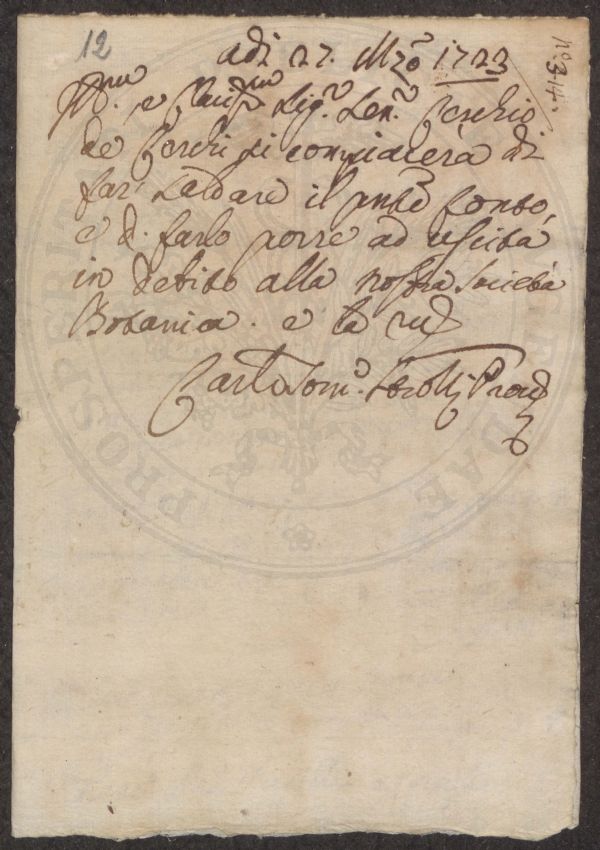 12
adì 27. Mzõ 1723
nº 34.
Sig.r Sen.r Cerchio
de Cerchi si compiacerà di
far saldare il pnte conto,
e di farlo porre ad uscita
in debito alla nostra Società
Botanica. e la
Carlo Tom.o Prov
PROSPERITATE